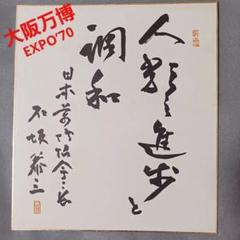 大阪万博
EXPO'70
人類の進歩と
調和
日本万博協会会長
石坂泰三